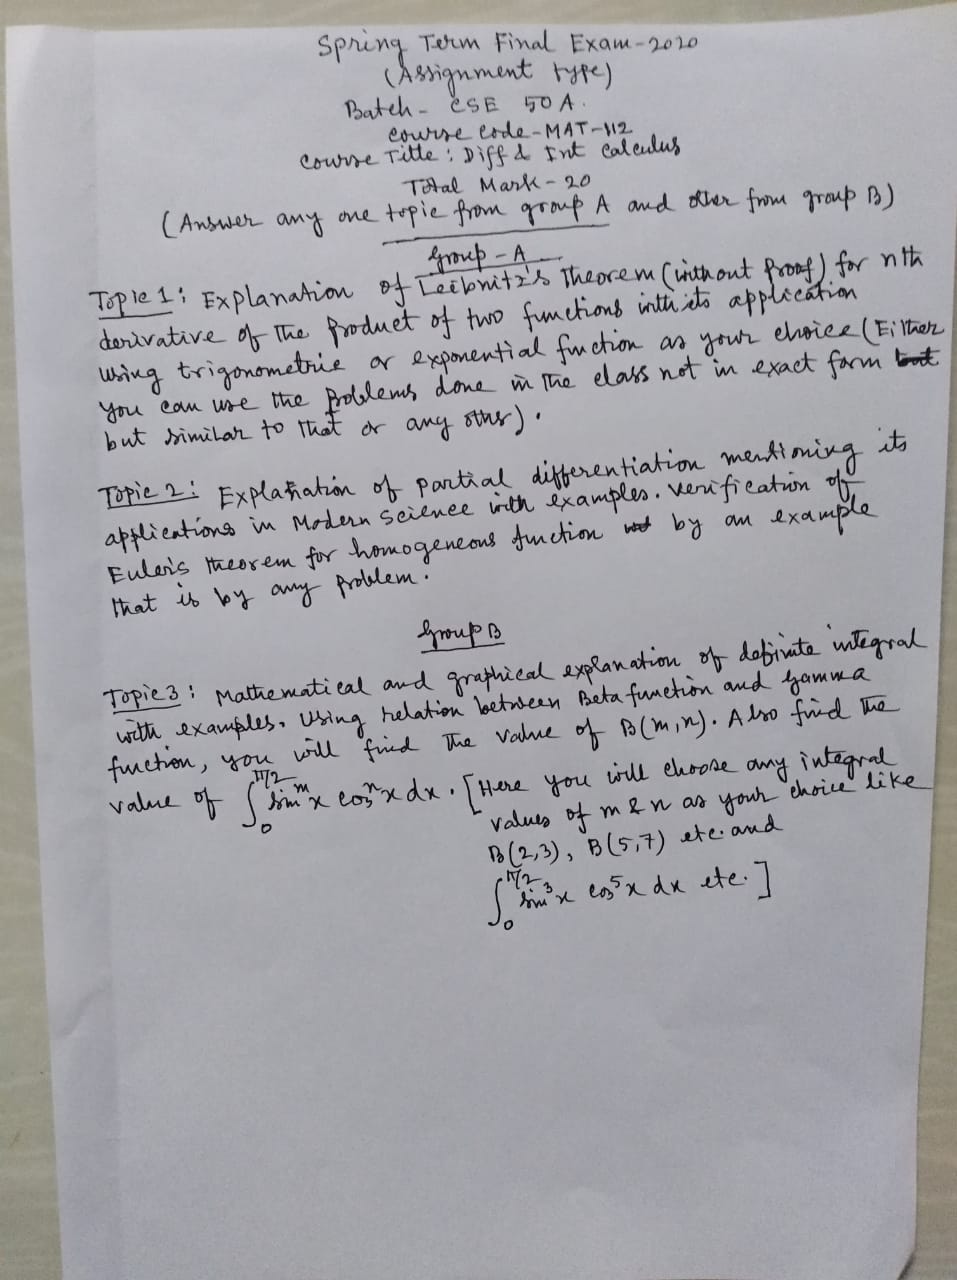 Spring Term Final Exam-2020
(Assignment type)
Batch - CSE 50 A.
Course Code-MAT-112
Course Title : Diff & Int Calculus
Total Mark - 20
(Answer any one topic from group A and other from group B)
Group - A
Topic 1 : Explanation of Leibnitz's Theorem (without Proof) for nth
derivative of the Product of two functions with its application
using trigonometric or exponential function as your choice (Either
you can use the problems done in the class not in exact form but
but similar to that or any other).
Topic 2 : Explanation of partial differentiation mentioning its
applications in Modern Science with examples. Verification of
Euler's theorem for homogeneous function by an example
that is by any problem.
Group B
Topic 3 : Mathematical and graphical explanation of definite integral
with examples. Using relation between Beta function and Gamma
function, you will find the value of B(m,n). Also find the
value of ∫₀^{π/2} sin^m x cos^n x dx. [Here you will choose any integral
values of m & n as your choice like
B(2,3), B(5,7) etc. and
∫₀^{π/2} sin³x cos⁵x dx etc.]